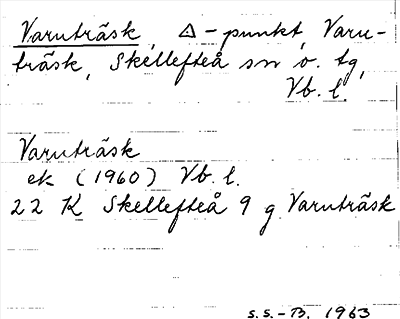 Varuträsk, △-punkt, Varu-
träsk, Skellefteå sn o. tg,
Vb. l.
Varuträsk
ek (1960) Vb. l.
22 K Skellefteå 9 g Varuträsk
S.S.-B. 1963